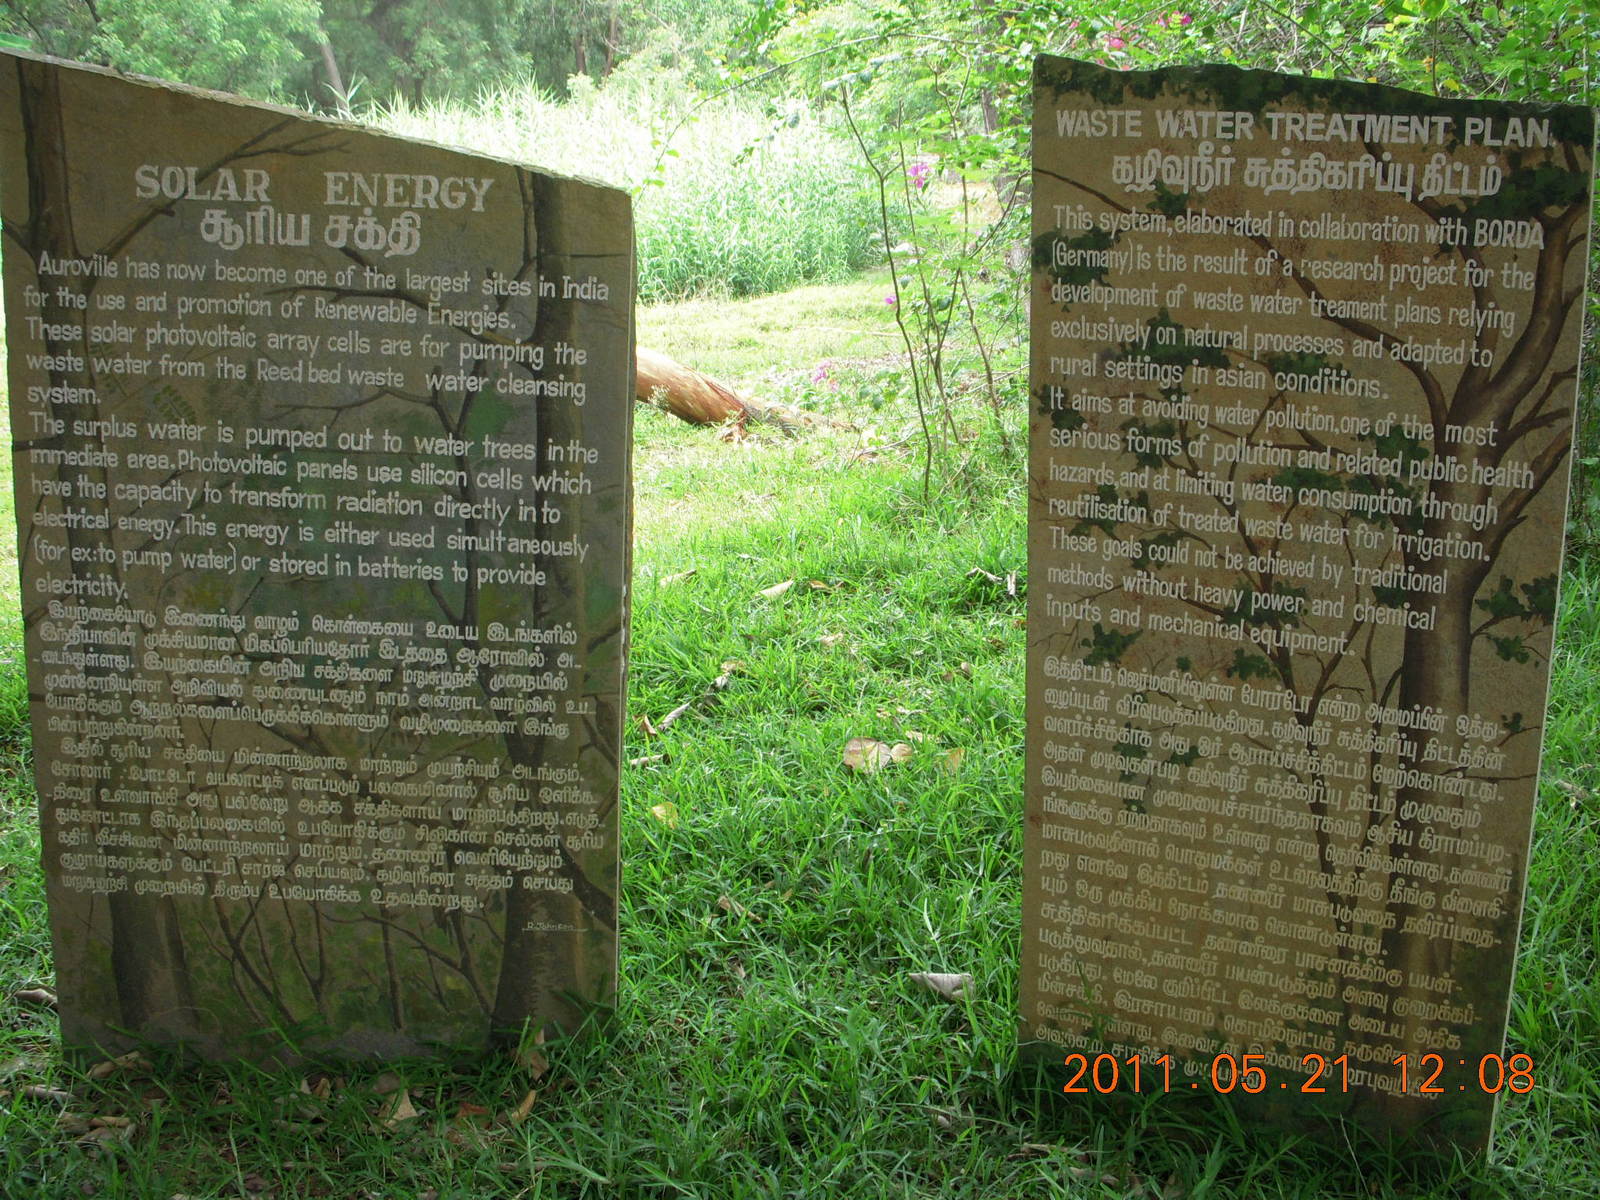 SOLAR ENERGY
சூரிய சக்தி
Auroville has now become one of the largest sites in India
for the use and promotion of Renewable Energies.
These solar photovoltaic array cells are for pumping the
waste water from the Reed bed waste water cleansing
system.
The surplus water is pumped out to water trees in the
immediate area. Photovoltaic panels use silicon cells which
have the capacity to transform radiation directly in to
electrical energy. This energy is either used simultaneously
(for ex: to pump water) or stored in batteries to provide
electricity.
இயற்கையோடு இணைந்து வாழும் கொள்கையை உடைய இடங்களில்
இந்தியாவின் முக்கியமான மிகப்பெரியதோர் இடத்தை ஆரோவில் அ-
-டைந்துள்ளது. இயற்கையின் அரிய சக்திகளை மறுசுழற்சி முறையில்
முன்னேறியுள்ள அறிவியல் துணையுடனும் நாம் அன்றாட வாழ்வில் உப
யோகிக்கும் ஆற்றல்களைப்பெருக்கிக்கொள்ளும் வழிமுறைகளை இங்கு
பின்பற்றுகின்றனர்.
இதில் சூரிய சக்தியை மின்னாற்றலாக மாற்றும் முயற்சியும் அடங்கும்.
சோலார் போட்டோ வயலாட்டிக் எனப்படும் பலகையினால் சூரிய ஒளிக்க
-திரை உள்வாங்கி அது பல்வேறு ஆக்க சக்திகளாய் மாற்றப்படுகிறது. எடுத்
துக்காட்டாக இந்தப்பலகையில் உபயோகிக்கும் சிலிகான் செல்கள் சூரிய
கதிர் வீச்சினை மின்னாற்றலாய் மாற்றும், தண்ணீர் வெளியேற்றும்
குழாய்களுக்கும் பேட்டரி சார்ஜ் செய்யவும், கழிவுநீரை சுத்தம் செய்து
மறுசுழற்சி முறையில் திரும்ப உபயோகிக்க உதவுகின்றது.
WASTE WATER TREATMENT PLAN.
கழிவுநீர் சுத்திகரிப்பு திட்டம்
This system, elaborated in collaboration with BORDA
(Germany) is the result of a research project for the
development of waste water treament plans relying
exclusively on natural processes and adapted to
rural settings in asian conditions.
It aims at avoiding water pollution, one of the most
serious forms of pollution and related public health
hazards, and at limiting water consumption through
reutilisation of treated waste water for irrigation.
These goals could not be achieved by traditional
methods without heavy power and chemical
inputs and mechanical equipment.
இந்திட்டம், ஜெர்மனியிலுள்ள போர்டோ என்ற அமைப்பின் ஒத்து-
ழைப்புடன் விரிவுபடுத்தப்படுகிறது. கழிவுநீர் சுத்திகரிப்பு திட்டத்தின்
வளர்ச்சிக்காக அது ஓர் ஆராய்ச்சித்திட்டம் மேற்கொண்டது.
அதன் முடிவுகள்படி கழிவுநீர் சுத்திகரிப்பு திட்டம் முழுவதும்
இயற்கையான முறையைச்சார்ந்ததாகவும் ஆசிய கிராமப்புற-
ங்களுக்கு ஏற்றதாகவும் உள்ளது என்று தெரிவித்துள்ளது. தண்ணீர்
மாசுபடுவதினால் பொதுமக்கள் உடல்நலத்திற்கு தீங்கு விளைகி-
றது எனவே இத்திட்டம் தண்ணீர் மாசுபடுவதை தவிர்ப்பதை-
யும் ஒரு முக்கிய நோக்கமாக கொண்டுள்ளது.
சுத்திகரிக்கப்பட்ட தண்ணீரை பாசனத்திற்கு பயன்-
படுத்துவதால், தண்ணீர் பயன்படுத்தும் அளவு குறைக்கப்-
படுகிறது. மேலே குறிப்பிட்ட இலக்குகளை அடைய அதிக
மின்சக்தி, இரசாயனம் தொழில்நுட்பக் கருவிகள்
2011.05.21 12:08